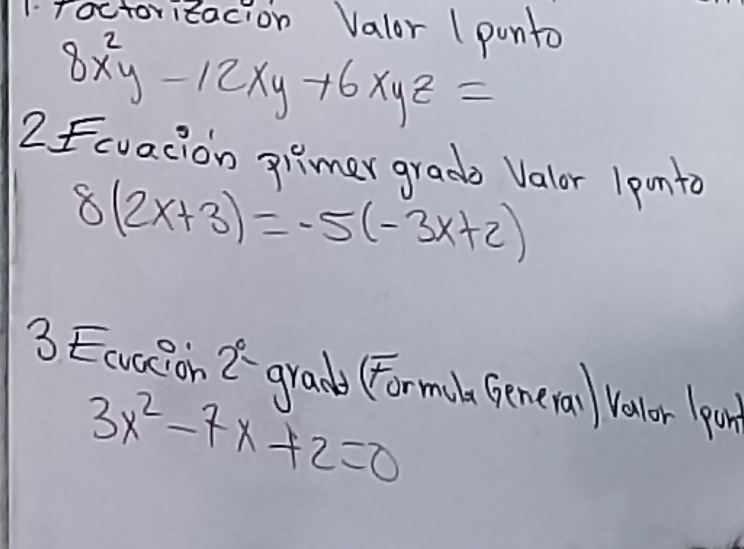 1. Factorización Valor 1 punto
8x²y - 12xy + 6xyz =
2 Ecuación primer grado Valor 1 punto
8(2x+3) = -5(-3x+2)
3 Ecuación 2º grado (Formula General) Valor 1 punt
3x² - 7x + 2 = 0